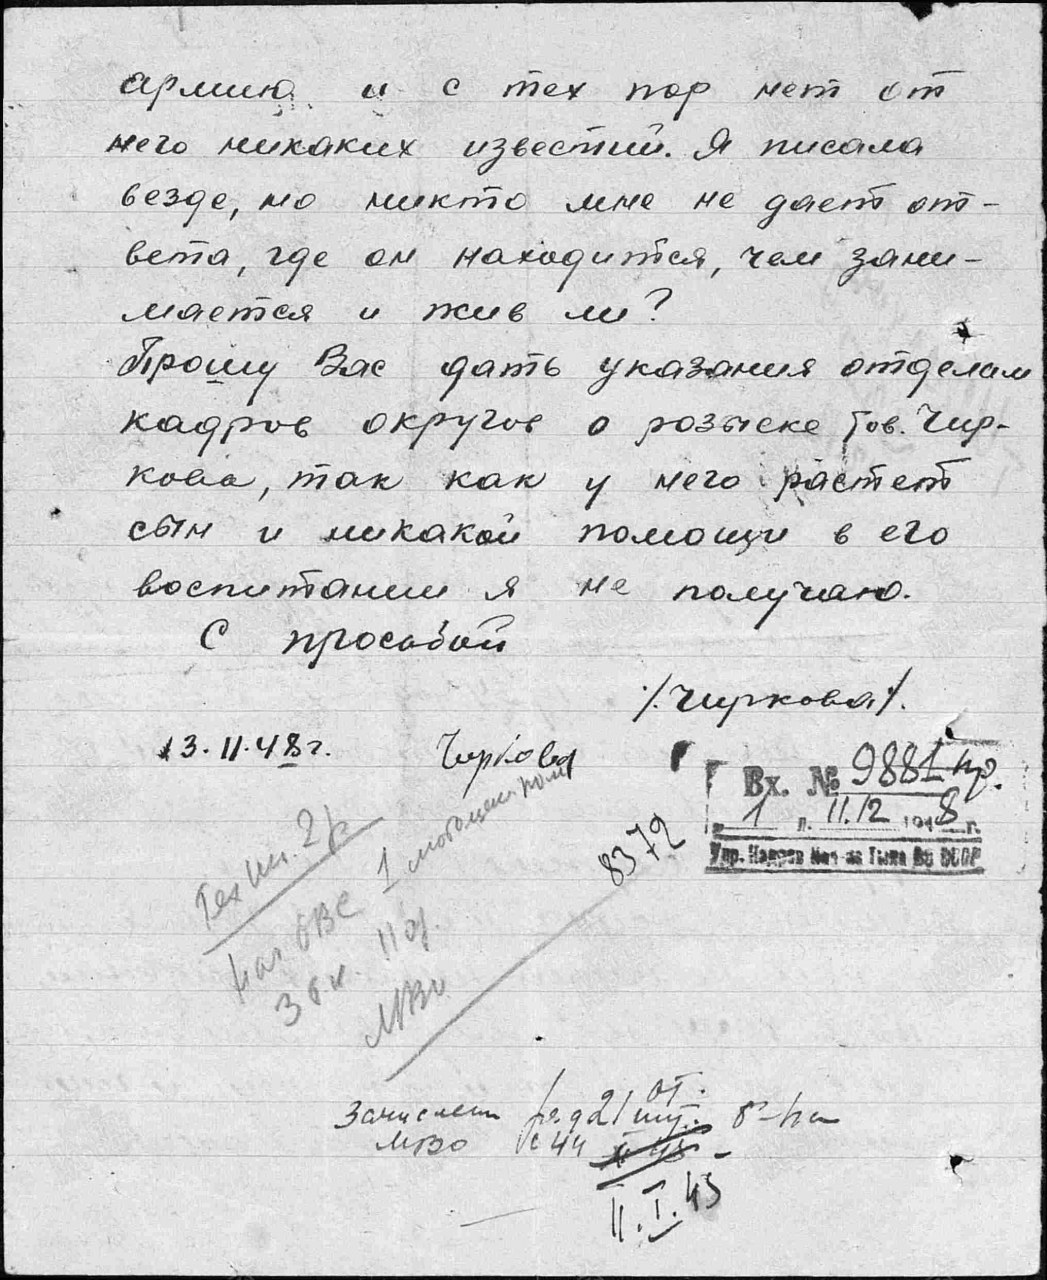 армию и с тех пор нет от
него никаких известий. Я писала
везде, но никто мне не дает от-
вета, где он находится, чем зани-
мается и жив ли?
Прошу Вас дать указания отделам
кадров округов о розыске тов. Чир-
кова, так как у него растет
сын и никакой помощи в его
воспитании я не получаю.
С просьбой
/.Чиркова/.
13.II.48г. Чиркова
Вх. № 9881
1 п. 11.12 1948 г.
Упр. Кадров Нач-ка Тыла ВС СССР
8372
Техин.
1
ОВС
МВО
Зачислен
МВО
от.
II.I.45